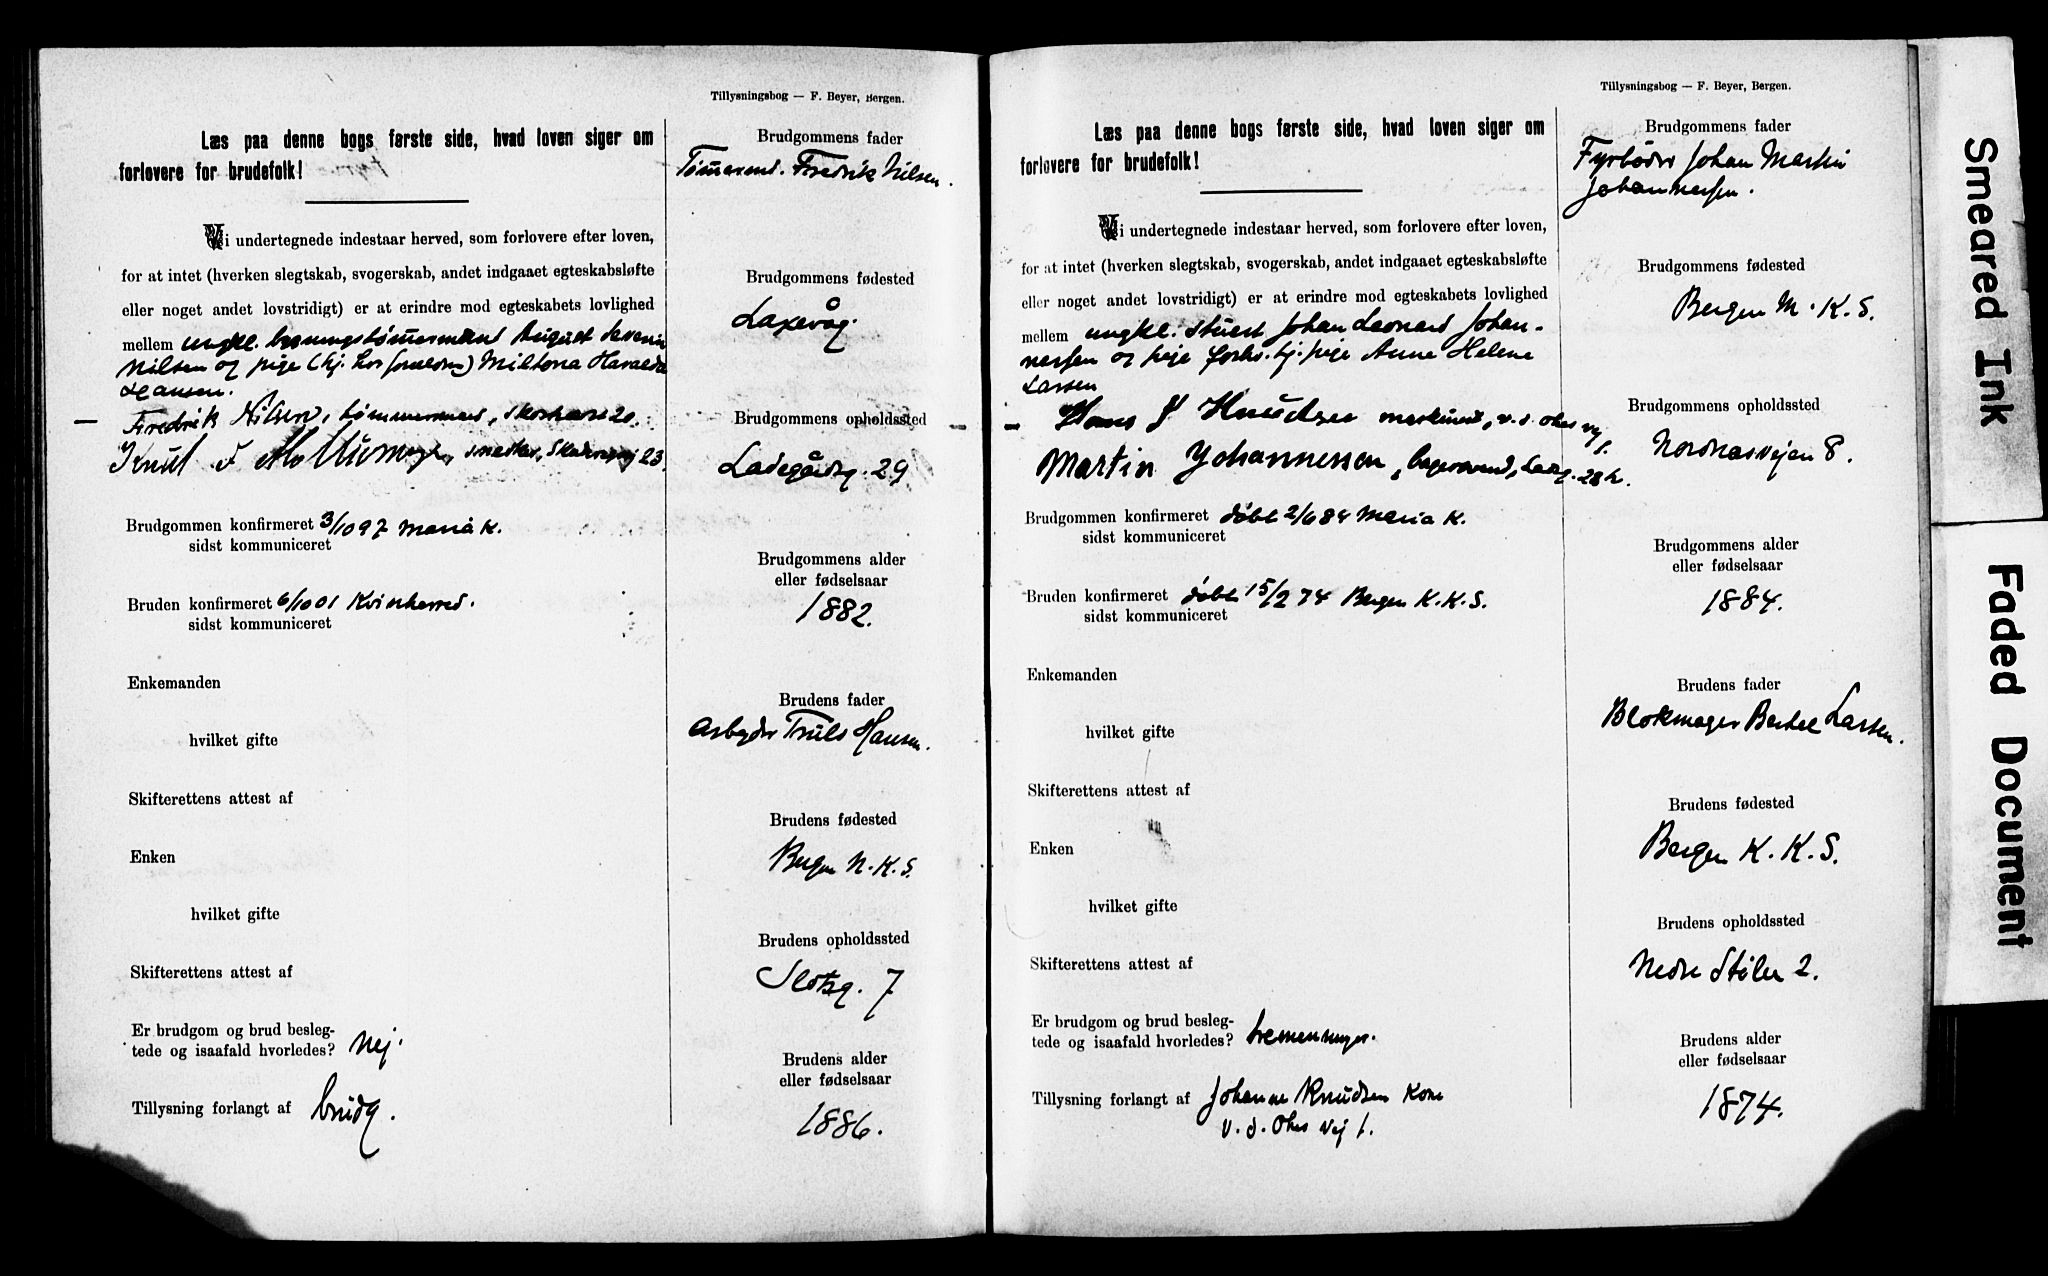 Tillysningsbog — F. Beyer, Bergen.
Læs paa denne bogs første side, hvad loven siger om
forlovere for brudefolk!
Vi undertegnede indestaar herved, som forlovere efter loven,
for at intet (hverken slegtskab, svogerskab, andet indgaaet egteskabsløfte
eller noget andet lovstridigt) er at erindre mod egteskabets lovlighed
mellem ungkl. bygningstømmermand August Severin
Nilsen og pige (hj. hos foreldren) Miltona Haralda
Hansen.
Fredrik Nilsen, tømmermand, 20.
Knut F snedker, 23.
Brudgommen konfirmeret 3/10 97 Maria K.
sidst kommuniceret
Bruden konfirmeret 6/10 01 Kvinherred.
sidst kommuniceret
Enkemanden
hvilket gifte
Skifterettens attest af
Enken
hvilket gifte
Skifterettens attest af
Er brudgom og brud besleg-
tede og isaafald hvorledes? Nej.
Tillysning forlangt af brudg.
Brudgommens fader
Tømmermd. Fredrik Nilsen.
Brudgommens fødested
Laxevåg.
Brudgommens opholdssted
Ladegårdsg. 29
Brudgommens alder
eller fødselsaar
1882.
Brudens fader
Arbejder Truls Hansen.
Brudens fødested
Bergen N. K. S.
Brudens opholdssted
Slotsg. 7
Brudens alder
eller fødselsaar
1886.
Tillysningsbog — F. Beyer, Bergen.
Læs paa denne bogs første side, hvad loven siger om
forlovere for brudefolk!
Vi undertegnede indestaar herved, som forlovere efter loven,
for at intet (hverken slegtskab, svogerskab, andet indgaaet egteskabsløfte
eller noget andet lovstridigt) er at erindre mod egteskabets lovlighed
mellem ungkl. stuert Johan Leonard Johan-
nessen og pige forhv. tj. pige Anne Helene
Larsen
Hans J Knudsen maskinist, v. d. Ohes vej 1.
Martin Johannessen, 28 b.
Brudgommen konfirmeret døbt 2/6 84 Maria K.
sidst kommuniceret
Bruden konfirmeret døbt 15/2 74 Bergen K. K. S.
sidst kommuniceret
Enkemanden
hvilket gifte
Skifterettens attest af
Enken
hvilket gifte
Skifterettens attest af
Er brudgom og brud besleg-
tede og isaafald hvorledes? tremenninger.
Tillysning forlangt af Johanne Knudsen Kone
v. d. Ohes vej 1.
Brudgommens fader
Fyrbøder Johan Martin
Johannessen.
Brudgommens fødested
Bergen M. K. S.
Brudgommens opholdssted
Nordnæsvejen 8.
Brudgommens alder
eller fødselsaar
1884.
Brudens fader
Blokmager Bertel Larsen.
Brudens fødested
Bergen K. K. S.
Brudens opholdssted
Nedre Støler 2.
Brudens alder
eller fødselsaar
1874.
Smeared Ink
Faded Document